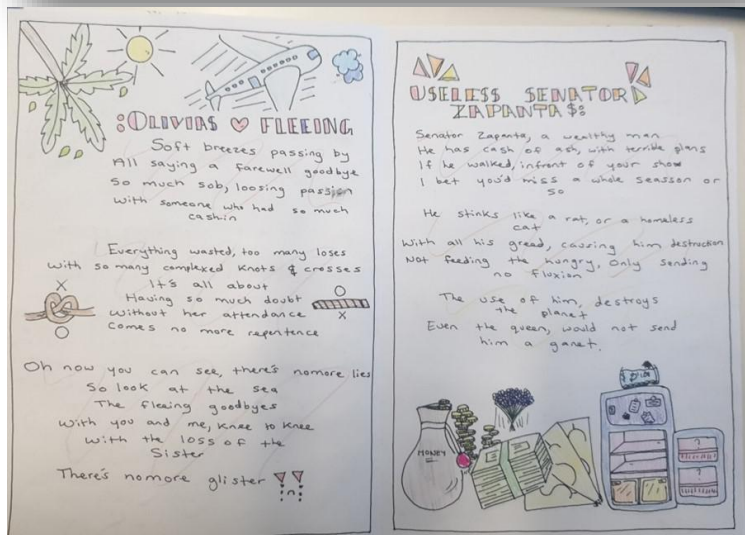 :OLIVIAS FLEEING
Soft breezes passing by
All saying a farewell goodbye
So much sob, loosing passion
With someone who had so much
cashin
Everything wasted, too many loses
With so many complexed Knots & crosses
It's all about
Having so much doubt
Without her attendance
Comes no more repentence
Oh now you can see, there's nomore lies
So look at the sea
The fleeing goodbyes
With you and me, Knee to Knee
With the loss of the
Sister
There's nomore glister
USELESS SENATOR
ZAPANTA $:
Senator Zapanta, a wealthy man
He has cash of ash, with terrible plans
If he walked, infront of your show
I bet you'd miss a whole seasson or
so
He stinks like a rat, or a homeless
cat
With all his gread, causing him destruction
Not feeding the hungry, Only sending
no fluxion
The use of him, destroys
the planet
Even the queen, would not send
him a ganet.
MONEY